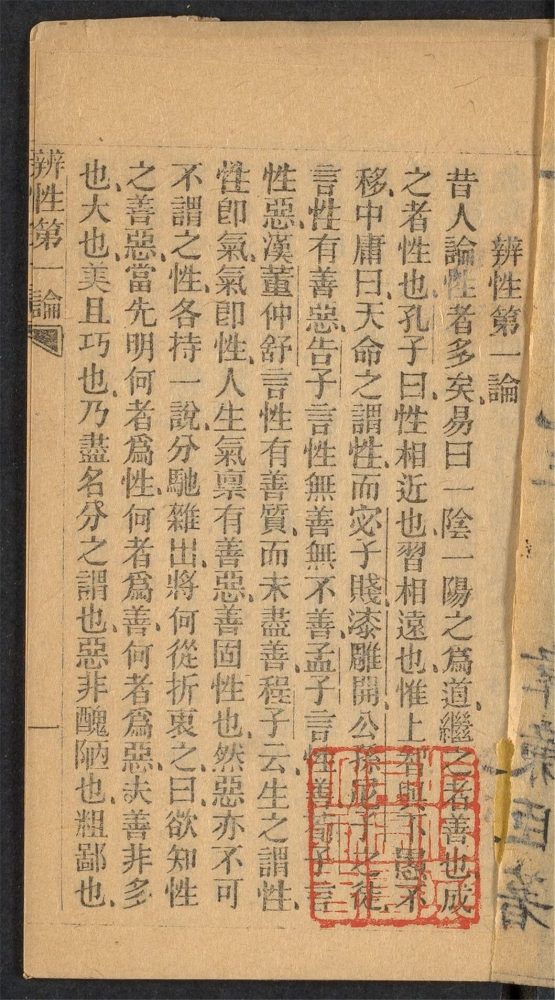 辨性第一論
昔人論性者多矣易曰一陰一陽之爲道繼之者善也成
之者性也孔子曰性相近也習相遠也惟上智與下愚不
移中庸曰天命之謂性而宓子賤漆雕開公孫尼子之徒
言性有善惡告子言性無善無不善孟子言性善荀子言
性惡漢董仲舒言性有善質而未盡善程子云生之謂性
性卽氣氣卽性人生氣稟有善惡善固性也然惡亦不可
不謂之性各持一說分馳雜出將何從折衷之曰欲知性
之善惡當先明何者爲性何者爲善何者爲惡夫善非多
也大也美且巧也乃盡名分之謂也惡非醜陋也粗鄙也
辨性第一論
一